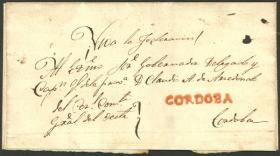 Viva la Federacion!
Al Exmo Sor Gobernador Delegado y
Capn Gl de la prova D. Claudio A. de Arredondo
del
Gral del
CORDOBA
Cordoba